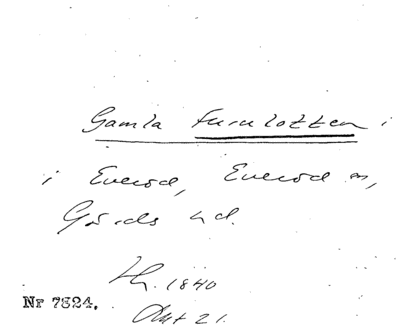 Gamla Furulotten i
i Everöd, Everöd sn,
Gärds hd.
Th. 1840
Akt 21.
Nr 7324.